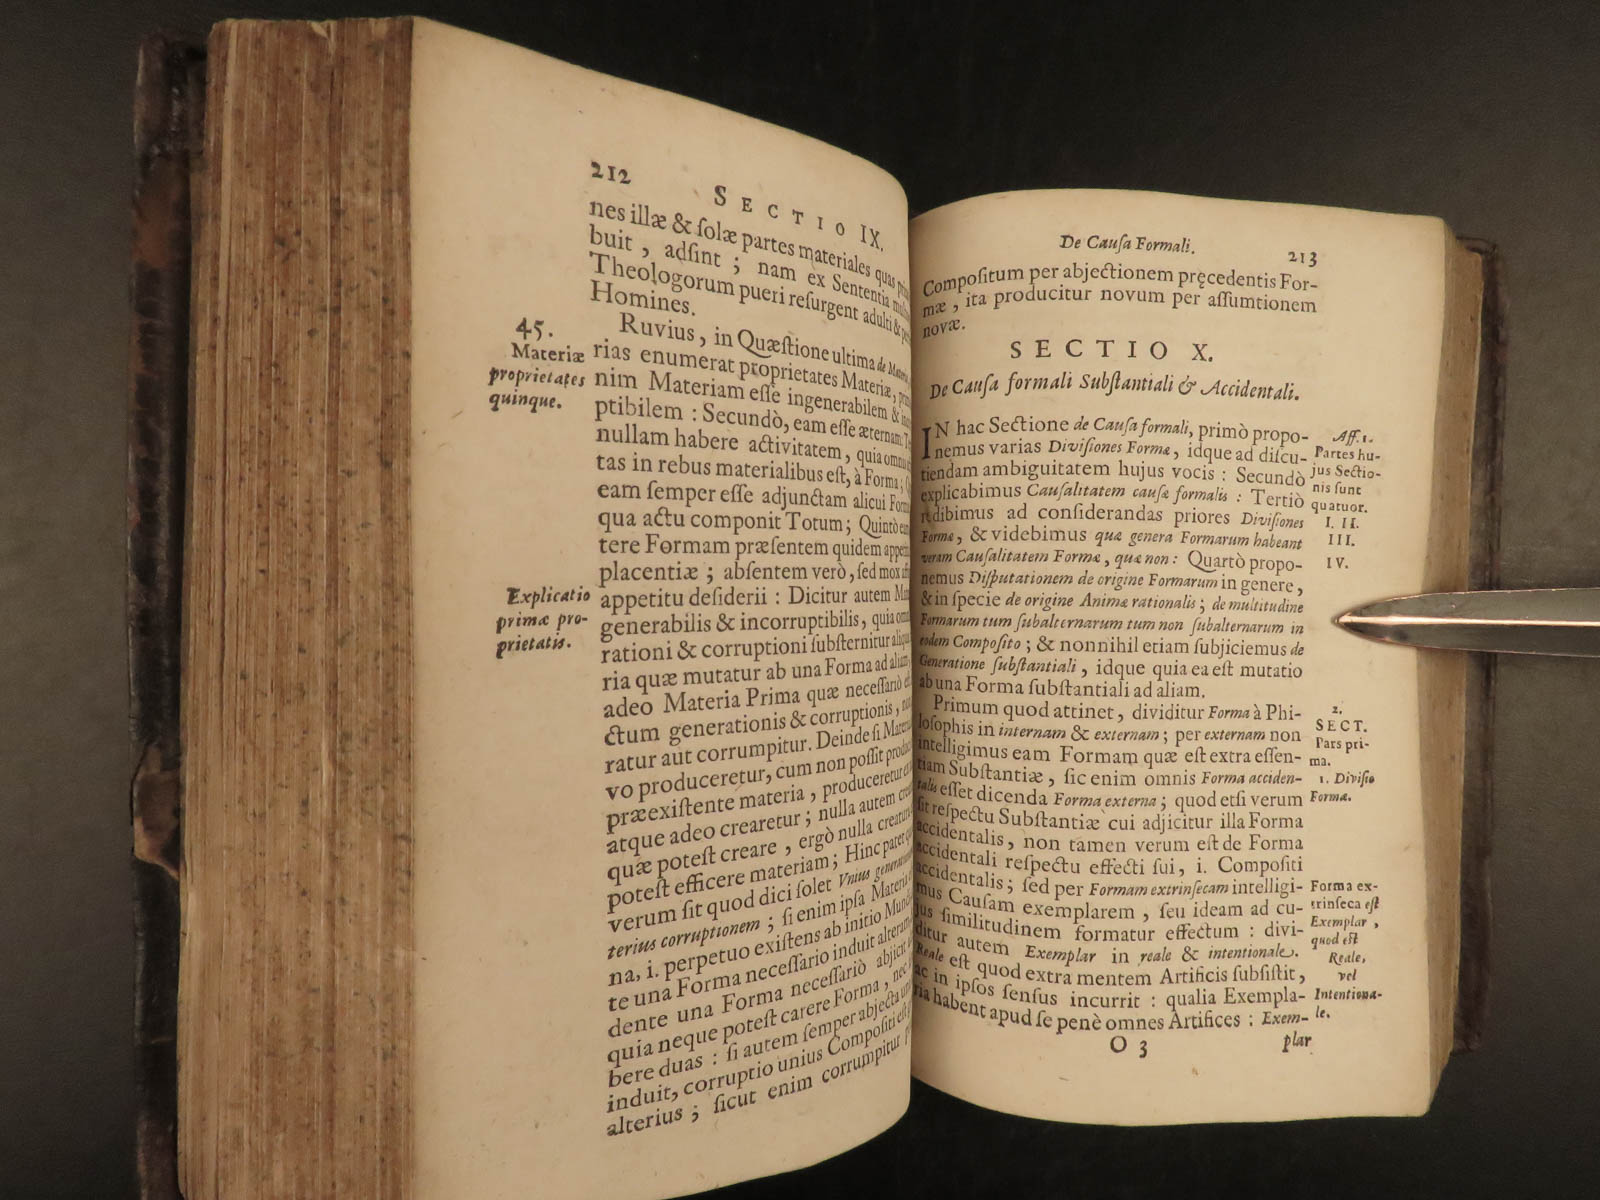 212 SECTIO IX.
nes illæ & ſolæ partes materiales quas
buit, adſint; nam ex Sententia
Theologorum pueri reſurgent adulti &
Homines.
45.
Materiæ
proprietates
quinque.
Ruvius, in Quæſtione ultima de
rias enumerat proprietates Materiæ,
nim Materiam eſſe ingenerabilem &
ptibilem: Secundò, eam eſſe æternam:
nullam habere activitatem, quia
tas in rebus materialibus eſt, à Forma;
eam ſemper eſſe adjunctam alicui
qua actu componit Totum; Quintò
tere Formam præſentem quidem
placentiæ; abſentem verò, ſed mox
Explicatio
primæ pro-
prietatis.
appetitu deſiderii: Dicitur autem
generabilis & incorruptibilis, quia
rationi & corruptioni ſubſternitur
ria quæ mutatur ab una Forma ad aliam,
adeo Materia Prima quæ neceſſariò
ctum generationis & corruptionis,
ratur aut corrumpitur. Deinde ſi
vo produceretur, cum non poſſit
præexiſtente materia, produceretur
atque adeo crearetur; nulla autem
quæ poteſt creare, ergò nulla
poteſt efficere materiam; Hinc patet
verum ſit quod dici ſolet Vnius
terius corruptionem; ſi enim ipſa
na, i. perpetuo exiſtens ab initio
te una Forma neceſſario induit
dente una Forma neceſſariò abjicit
quia neque poteſt carere Forma, nec
bere duas: ſi autem ſemper abjecta
induit, corruptio unius Compoſiti eſt
alterius; ſicut enim corrumpitur
De Cauſa Formali. 213
Compoſitum per abjectionem pręcedentis For-
mæ, ita producitur novum per aſſumtionem
novæ.
SECTIO X.
De Cauſa formali Subſtantiali & Accidentali.
IN hac Sectione de Cauſa formali, primò propo-
nemus varias Diviſiones Formæ, idque ad diſcu-
tiendam ambiguitatem hujus vocis: Secundò
explicabimus Cauſalitatem cauſæ formalis: Tertiò
redibimus ad conſiderandas priores Diviſiones
Formæ, & videbimus quæ genera Formarum habeant
veram Cauſalitatem Formæ, quæ non: Quartò propo-
nemus Diſputationem de origine Formarum in genere,
& in ſpecie de origine Animæ rationalis; de multitudine
Formarum tum ſubalternarum tum non ſubalternarum in
eodem Compoſito; & nonnihil etiam ſubjiciemus de
Generatione ſubſtantiali, idque quia ea eſt mutatio
ab una Forma ſubſtantiali ad aliam.
Aſſ. 1.
Partes hu-
jus Sectio-
nis ſunt
quatuor.
I. II.
III.
IV.
Primum quod attinet, dividitur Forma à Phi-
loſophis in internam & externam; per externam non
intelligimus eam Formam quæ eſt extra eſſen-
tiam Subſtantiæ, ſic enim omnis Forma acciden-
talis eſſet dicenda Forma externa; quod etſi verum
ſit reſpectu Subſtantiæ cui adjicitur illa Forma
accidentalis, non tamen verum eſt de Forma
accidentali reſpectu effecti ſui, i. Compoſiti
accidentalis; ſed per Formam extrinſecam intelligi-
mus Cauſam exemplarem, ſeu ideam ad cu-
jus ſimilitudinem formatur effectum: divi-
ditur autem Exemplar in reale & intentionale.
Reale eſt quod extra mentem Artificis ſubſiſtit,
ac in ipſos ſenſus incurrit: qualia Exempla-
ria habent apud ſe penè omnes Artifices: Exem-
2.
SECT.
Pars pri-
ma.
1. Diviſio
Formæ.
Forma ex-
trinſeca eſt
Exemplar,
quod eſt
Reale,
vel
Intentiona-
le.
O 3 plar